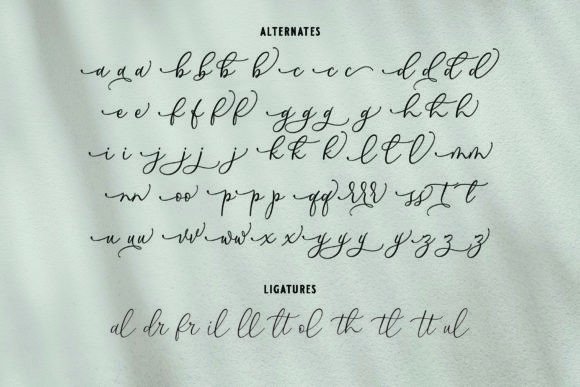 ALTERNATES
a a a b b b b c c c d d d d
e e f f f f g g g g h h h
i i j j j j k k k l l l m m
n n o o p p p q q r r r s s t t
u u u v v w w x x y y y y z z z
LIGATURES
al dr fr il ll tt ol th tl tt ul